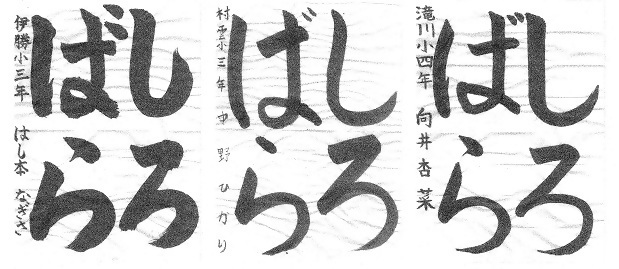 しろ
ばら
滝川小四年 向井杏菜
しろ
ばら
村雲小三年 中野ひかり
しろ
ばら
伊勝小三年 はし本 なぎさ